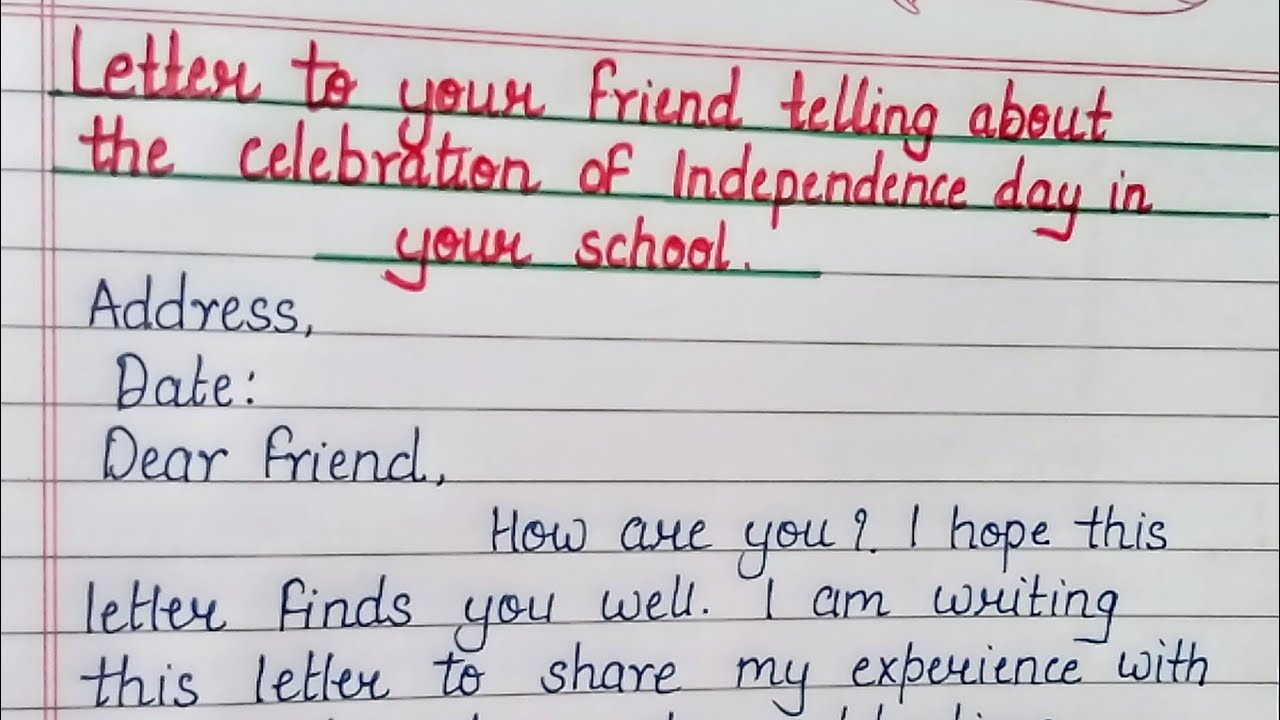 Letter to your friend telling about
the celebration of Independence day in
your school.
Address,
Date:
Dear friend,
How are you? I hope this
letter finds you well. I am writing
this letter to share my experience with